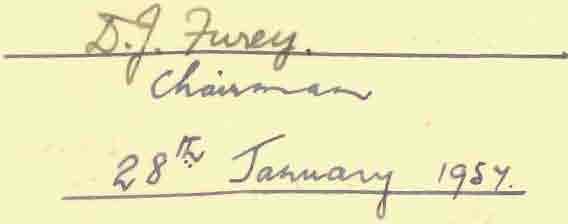 D.J. Furey.
Chairman
28th January 1957.